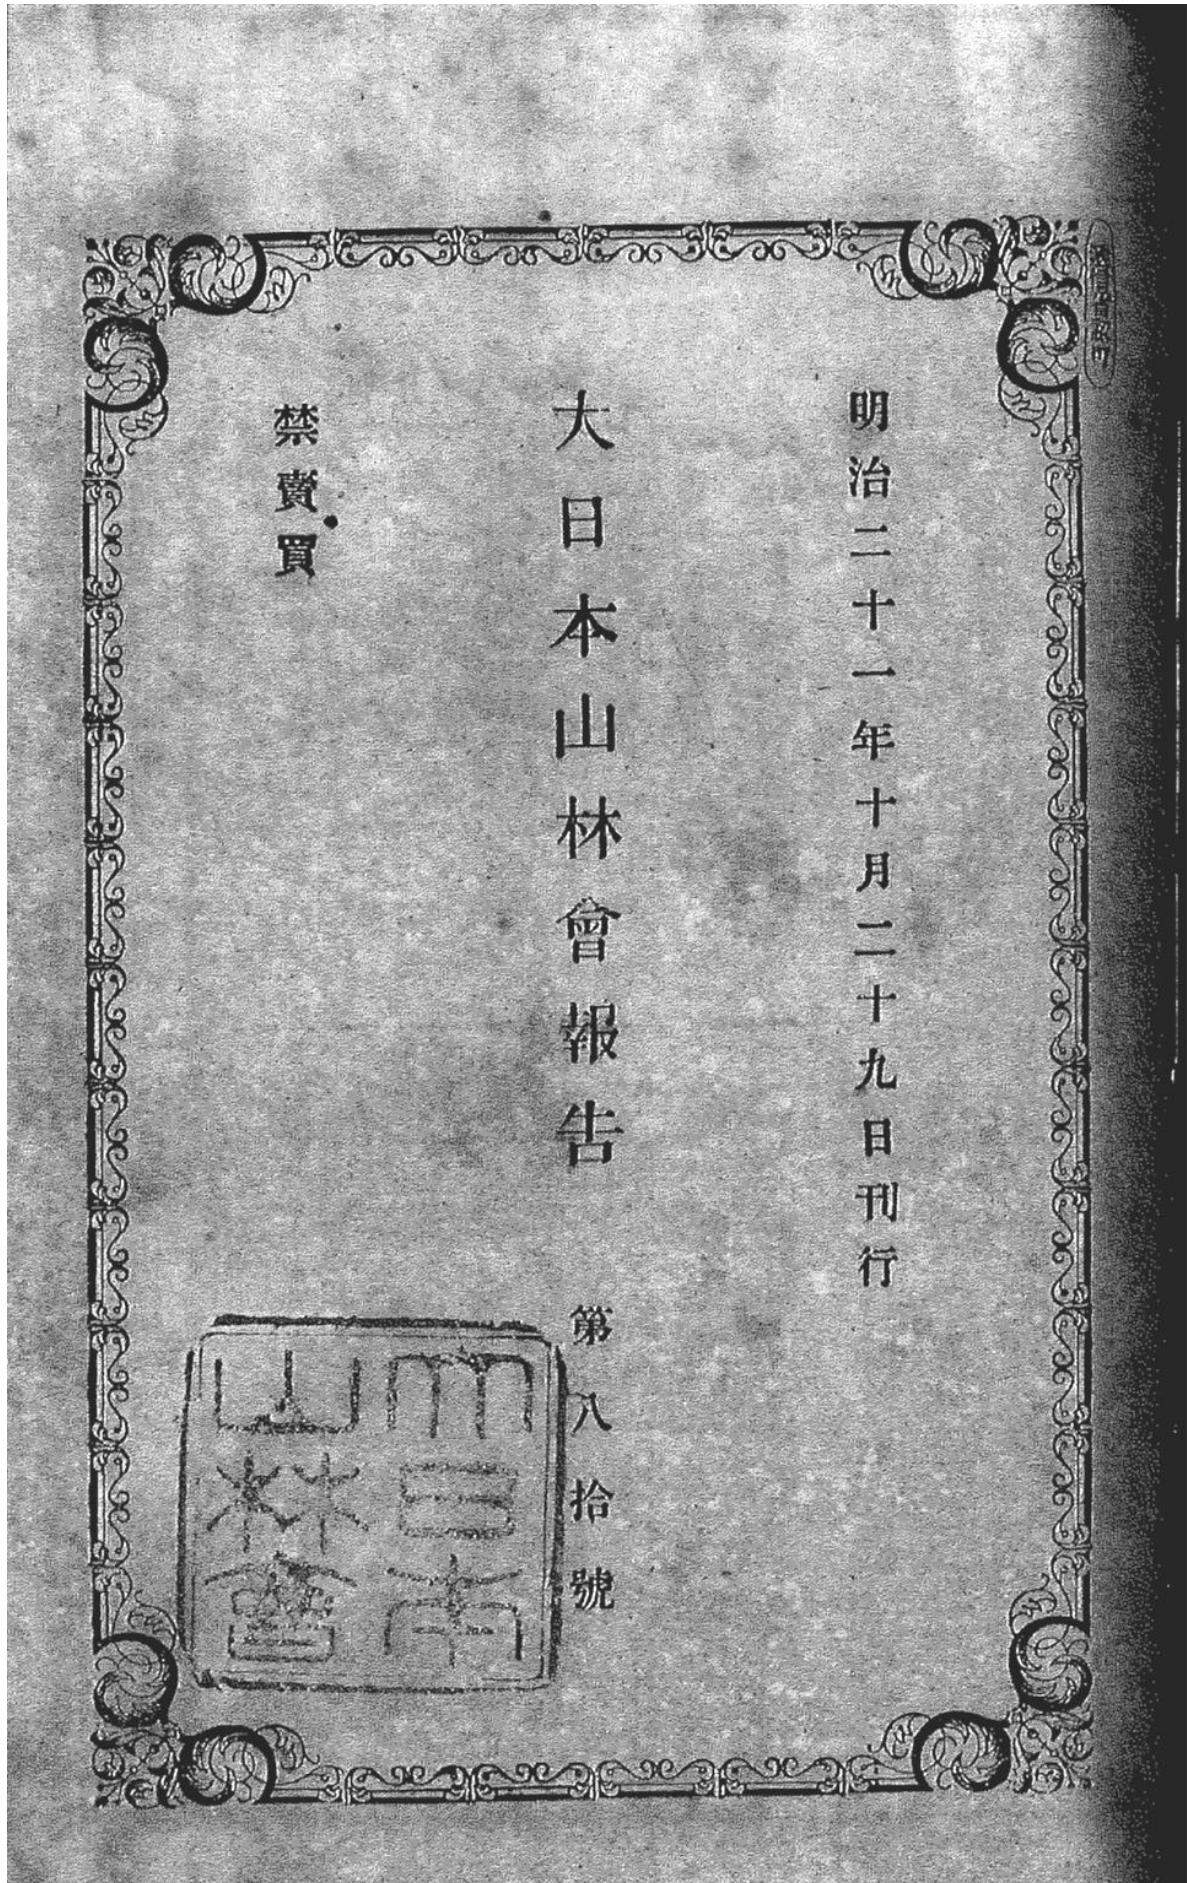 明治二十一年十月二十九日刊行
大日本山林會報告 第八拾號
禁賣買
大日本
山林會